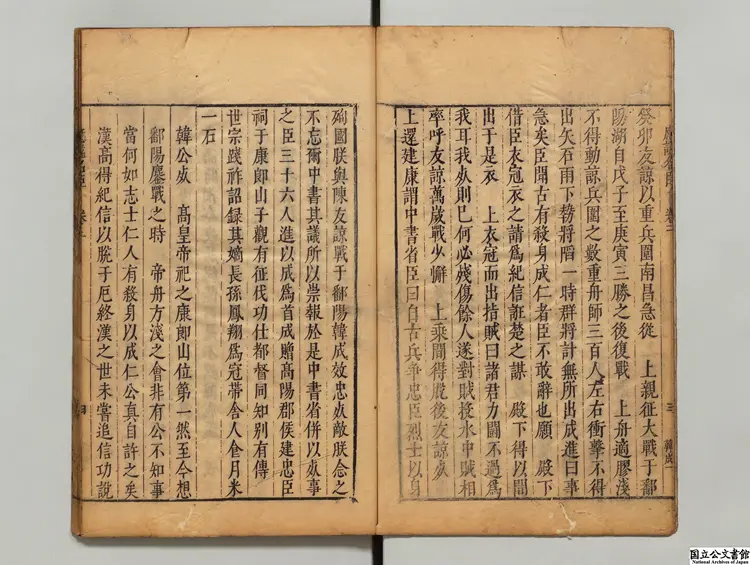 癸卯友諒以重兵圍南昌急從　上親征大戰于鄱
陽湖自戊子至庚寅三勝之後復戰　上舟適膠淺
不得動諒兵圍之數重舟師三百人左右衝擊不得
出矢石雨下勢將蹈一時群將計無所出成進曰事
急矣臣聞古有殺身成仁者臣不敢辭也願　殿下
借臣衣冠衣之請爲紀信誑楚之謀　殿下得以間
出于是衣　上衣冠而出挌賊曰諸君力鬪不過爲
我耳我死則已何必殘傷餘人遂對賊投水中賊相
率呼友諒萬歲戰少懈　上乘間得脫後友諒死
上還建康謂中書省臣曰自古兵爭忠臣烈士以身
殉國朕與陳友諒戰于鄱陽韓成效忠死敵朕念之
不忘爾中書其議所以崇報於是中書省併以死事
之臣三十六人進以成爲首成贈高陽郡侯建忠臣
祠于康郞山子觀有征伐功仕都督同知別有傳
世宗踐祚詔録其嫡長孫鳳翔爲冠帶舍人食月米
一石
韓公成　高皇帝祀之康郞山位第一然至今想
鄱陽鏖戰之時　帝舟方淺之會非有公不知事
當何如志士仁人有殺身以成仁公真自許之矣
漢高得紀信以脫于厄終漢之世未嘗追信功說
卷二
三
韓成
四
国立公文書館
National Archives of Japan